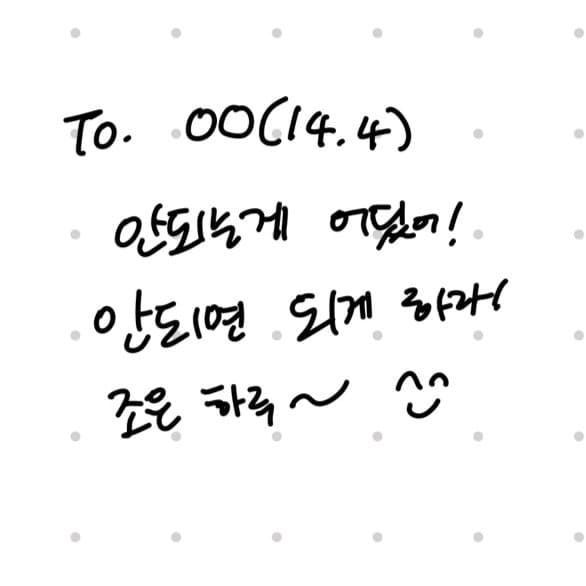 To. OO(14.4)
안되는게 어딨어!
안되면 되게 하라!
조은 하루~ ^^